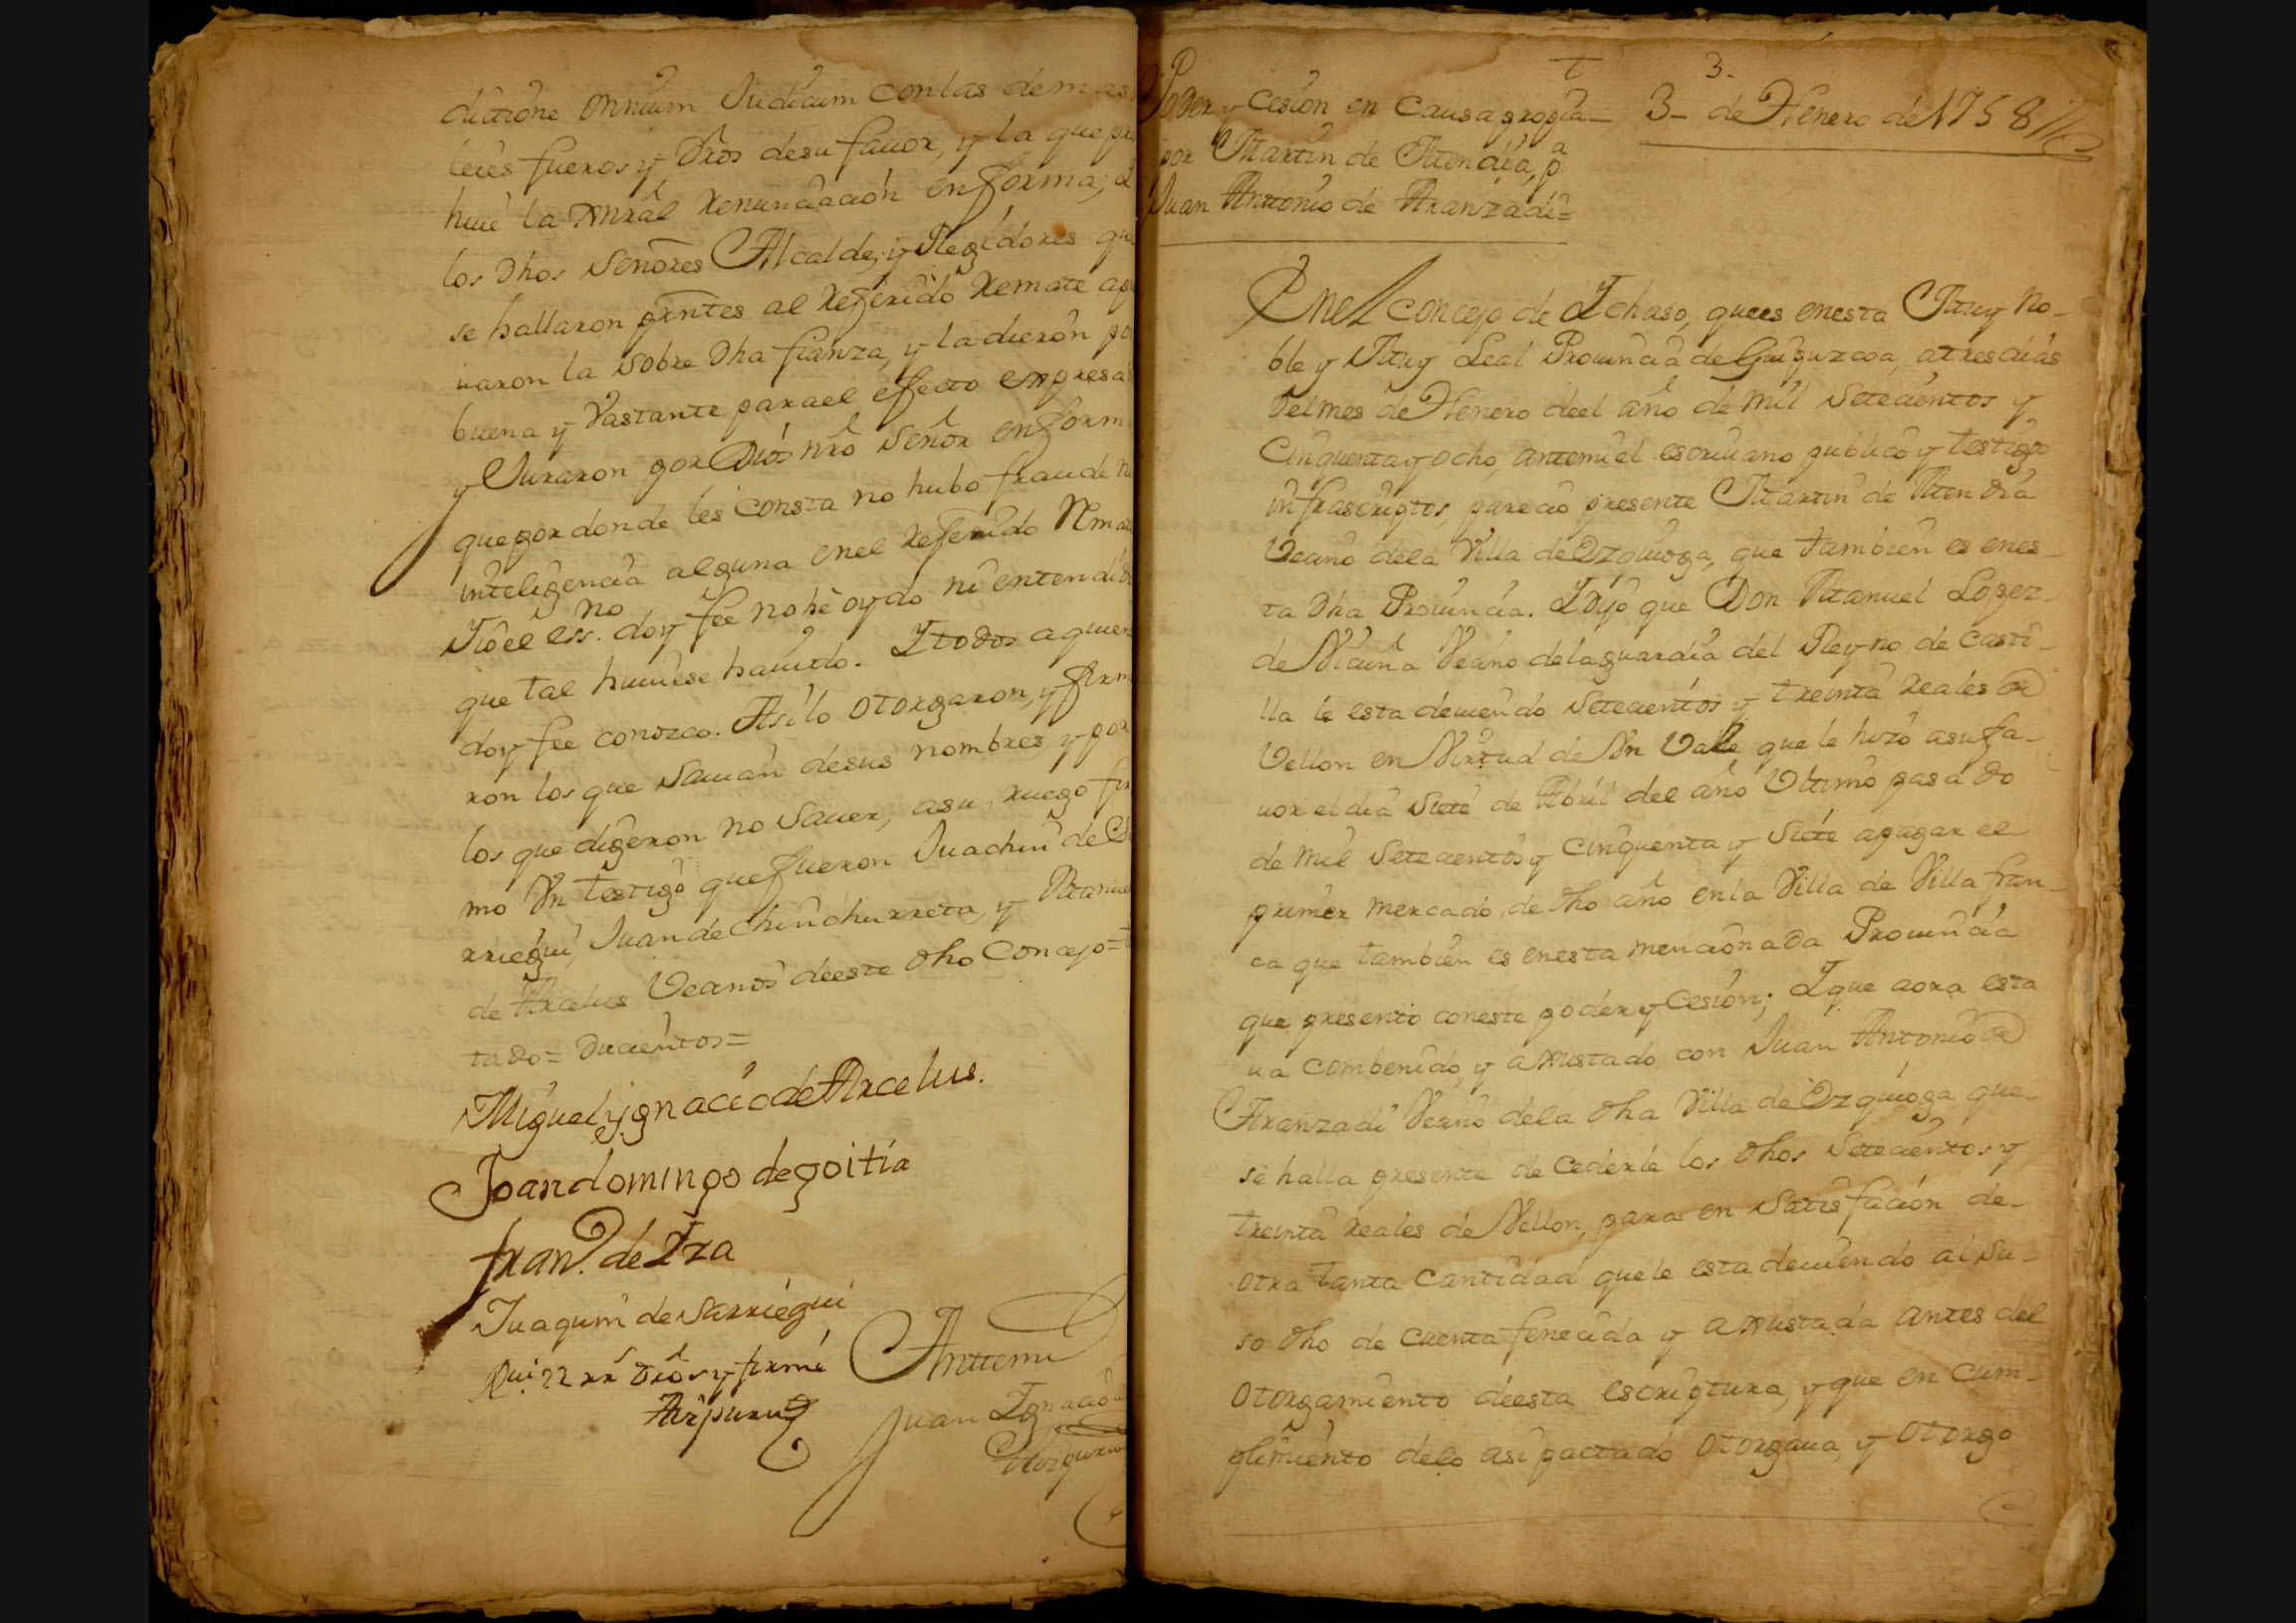 dictione omnium Judicum con las demas
leies fueros y dros de su fauor, y la que pro
hiue la Gnral renunciacion en forma; I
los dhos Señores Alcalde, y Regidores que
se hallaron prntes al referido remate apro
uaron la sobre dha fianza, y la dieron por
buena y Vastante para el efecto expresa
y Juraron por Dios nro Señor en form
que por donde les consta no hubo fraude n
inteligencia alguna en el referido Rema
Io el ess.no doy fee no hè oydo ni entendido
que tal huuiese hauido. I todos a quien
doy fee conozco. Asi lo otorgaron, y firm
ron los que Sauian de sus nombres, y por
los que digeron no Sauer, a su ruego fir
mo Vn testigo que fueron Juachin de S
rriegui, Juan de Chinchurreta, y Manuel
de Arcelus Vecinos de este dho Concejo=
tado= Ducientos=
Miguel ygnacio de Arcelus.
Joan domingo de goitia
fran.co de Iza
Juaquin de Sarriegui
Rui 22 rr dros y firmé
Aizpuru
Anttemi
Juan Ignacio
Aizpuru
3.
Poder y Cesion en Causa propia_ 3_ de Henero de 1758//
por Martin de Mendia, p.a
Juan Antonio de Aranzadi=
En el Concejo de Ichaso, que es en esta Muy No_
ble y Muy Leal Prouincia de Guipuzcoa, a tres dias
del mes de Henero de el año de mil Setecientos y
Cinquenta y ocho, ante mi el escriuano publico y testigos
infrascriptos, parecio presente Martin de Mendia
Vecino de la Villa de Ozquioga, que tambien es en es_
ta dha Prouincia. I dijo que Don Manuel Lopez_
de Vicuña Vecino de la guardia del Reyno de Casti_
lla le esta deuiendo Setecientos y treinta reales de
Vellon en Virtud de Vn Valle que le hizo a su fa_
uor el dia Siete de Abril del año Vltimo pasado
de mil Setecientos y Cinquenta y Siete a pagar el
primer mercado de dho año en la Villa de Villa fran_
ca que tambien es en esta mencionada Prouincia
que presentó con este poder y Cesion; I que aora esta
ua combenido, y ajustado con Juan Antonio de
Aranzadi Vecino de la dha Villa de Ozquioga que_
se halla presente de Cederle los dhos Setecientos y
treinta reales de Vellon, para en Satisfacion de_
otra tanta Cantidad que le esta deuiendo al Su_
so dho de cuenta fenecida y ajustada antes del
otorgamiento de esta escriptura, y que en Cum_
plimiento de lo asi pactado otorgaua, y otorgo